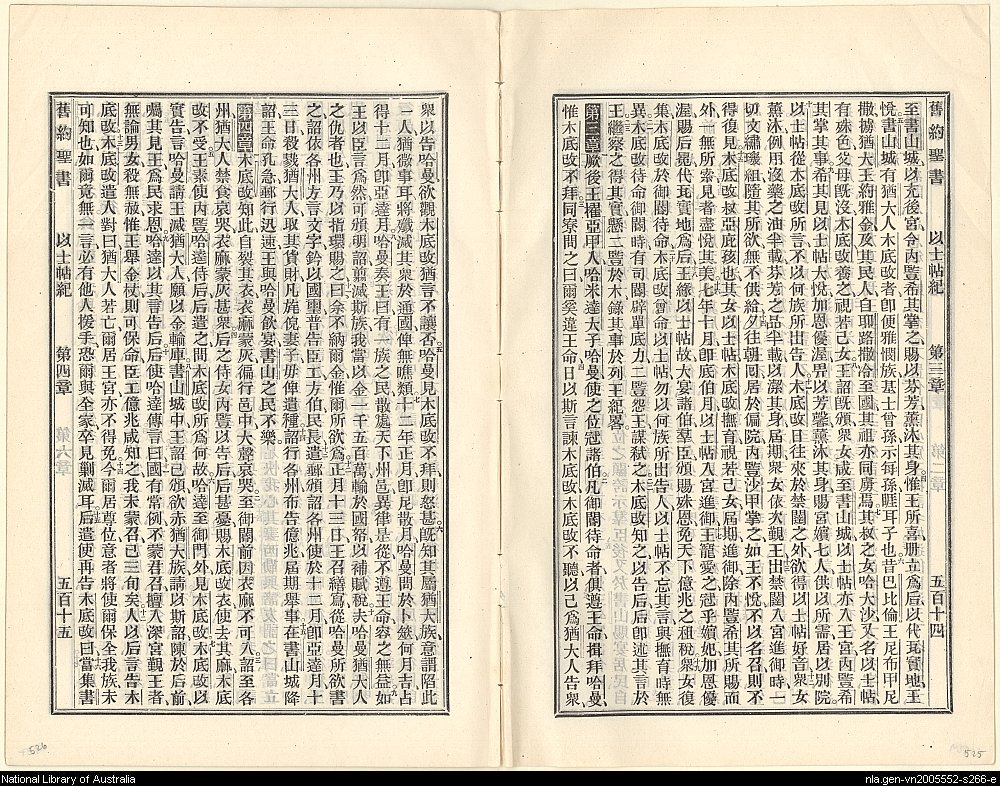 舊約聖書 以士帖紀 第三章 五百十四
至書山城以充後宮令內豎希其掌之賜以芬芳薰沐其身惟王所喜册立爲后以代瓦實地王
悅書山城有猶大人木底改者卽便雅憫族基士曾孫示每孫睚耳子也昔巴比倫王尼布甲尼
撒擄猶大王約雅金及其民人自耶路撒冷至國其祖亦同虜焉其叔之女哈大沙又名以士帖
有殊色父母旣沒木底改養之視若己女王詔旣頒衆女咸至書山城以士帖亦入王宮內豎希
其掌其事希其見以士帖大悅加恩優渥畀以芳馨薰沐其身賜宮嬪七人供以所需居以別院
以士帖從木底改所言不以何族所出告人木底改日往來於禁闥之外欲得以士帖好音衆女
薰沐例用沒藥之油半載芬芳之品半載以潔其身屆期衆女依次覲王出禁闥入宮進御時一
切文繡組隨其所欲無不供給夕往朝囘居於偏院內豎沙甲掌之如王不悅不以名召則不
得復見木底改叔亞庇孩也其女以士帖木底改撫育視若己女屆期進御除內豎希其所賜而
外一無所索見者盡悅其美七年十月卽底伯月以士帖入宮進御王寵愛之冠乎嬪妃加恩優
渥賜后冕代瓦實地爲后王緣以士帖故大宴諸伯羣臣頒賜殊恩免天下億兆之租稅衆女復
集木底改於御闕待命木底改曾命以士帖勿以何族所出告人以士帖不忘其言與撫育時無
異木底改待命御闕時有司閽辟單底力二豎怨王謀弒之木底改知之以告后后卽述其言於
王繼察之得其實懸二豎於木錄其事於列王紀畧
第三章厥後王擢亞甲人哈米達大子哈曼使之位冠諸伯凡御闕待命者俱遵王命揖拜哈曼
惟木底改不拜同寮問之曰爾奚違王命日以斯言諫木底改木底改不聽以己爲猶大人告衆
衆以告哈曼欲觀木底改猶言不讓否哈曼見木底改不拜則怒甚旣知其屬猶大族意謂陷此
一人猶微事耳將殲滅其衆於通國俾無噍類十二年正月卽尼散月哈曼問於卜筮何月吉占
得十二月卽亞達月哈曼奏王曰有一族之民散處天下州邑異律是從不遵王命容之無益如
王以臣言爲然可頒明詔翦滅斯族我當以金一千五百萬輸於國帑以補賦稅夫哈曼猶大人
之仇者也王乃以指環賜之曰余不納爾金惟爾所欲爲正月十三日王召繕寫從哈曼所欲書
之詔依各州方言文字鈐以國璽普告臣工方伯民長遣郵頒詔各州使於十二月卽亞達月十
三日殺戮猶大人取其貨財凡旄倪妻子毋俾遺種詔行各州布告億兆屆期舉事在書山城降
詔王命孔急郵行迅速王與哈曼飮宴書山之民不樂
第四章木底改知此自裂其衣衣麻蒙灰徧行邑中大聲哀哭至御闕前因衣麻不可入詔至各
州猶大人禁食哀哭衣麻蒙灰甚衆后之侍女內豎以告后后甚憂賜木底改衣衣使去其麻木底
改不受王素使內豎哈達侍后后遣之問木底改所爲何故哈達至御門外見木底改木底改以
實告言哈曼請王滅猶大人願以金輸庫書山城中王詔已頒欲赤猶大族請以斯詔陳於后前
囑其見王爲民求恩哈達以其言告后后使哈達傳言曰國有常例不蒙君召擅入深宮覲王者
無論男女殺無赦惟王舉金杖則可保命臣工億兆咸知之我未蒙召已三旬矣人以后言告木
底改木底改遣人對曰猶大人若亡爾居王宮亦不得免今爾居尊位意者將使爾保全我族未
可知也如爾竟無一言必有他人援手恐爾與全家卒見剿滅耳后遣使再告木底改曰當集書
舊約聖書 以士帖紀 第四章 五百十五
526
525
National Library of Australia
nla.gen-vn2005552-s266-e